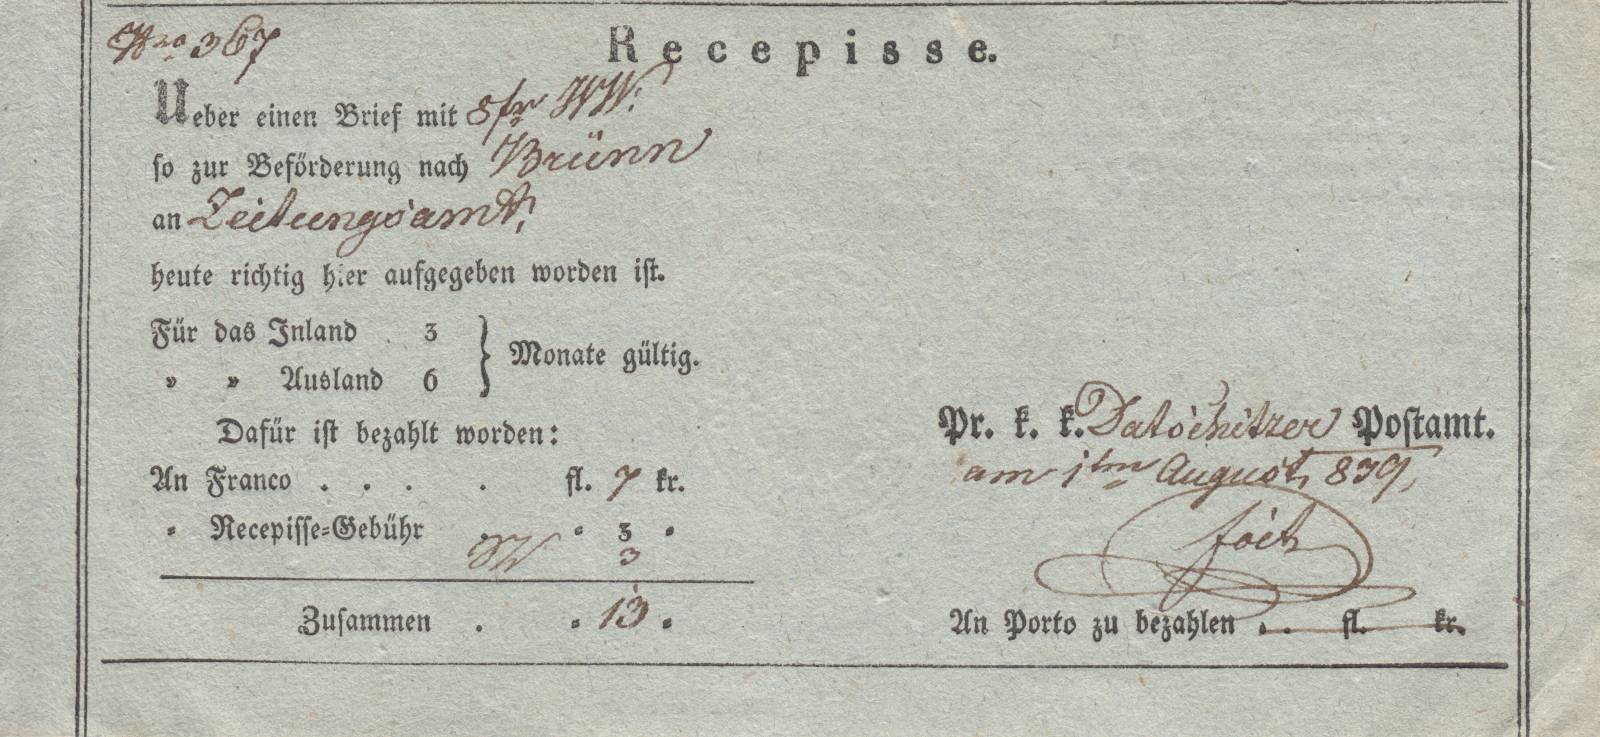 Nro 367
Recepisse.
Ueber einen Brief mit 8 fr WW.
so zur Beförderung nach Brünn
an Zeitungsamt,
heute richtig hier aufgegeben worden ist.
Für das Inland . 3
» » Ausland 6 } Monate gültig.
Dafür ist bezahlt worden:
An Franco . . . . fl. 7 kr.
" Recepisse=Gebühr . " 3 "
3
Zusammen . " 13 "
Pr. k. k. Datschitzer Postamt.
am 1ten August, 839,
An Porto zu bezahlen . . fl. kr.